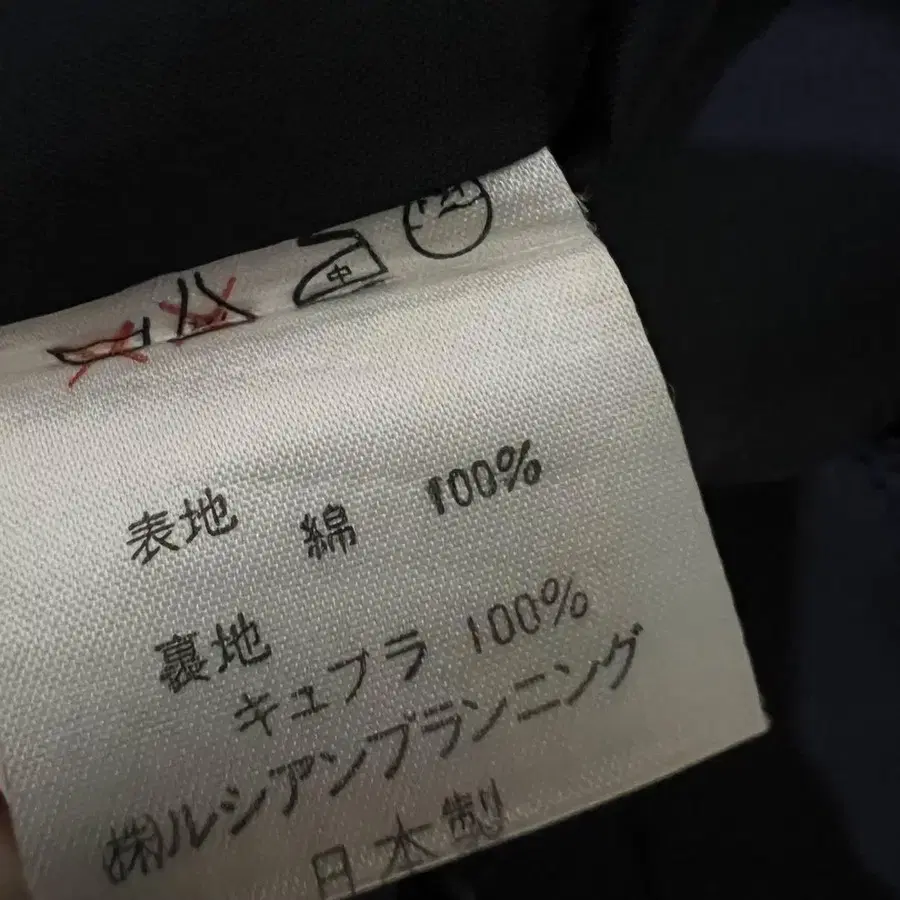 中
表地
綿 100%
裏地
キュプラ 100%
㈱ルシアンプランニング
日本製